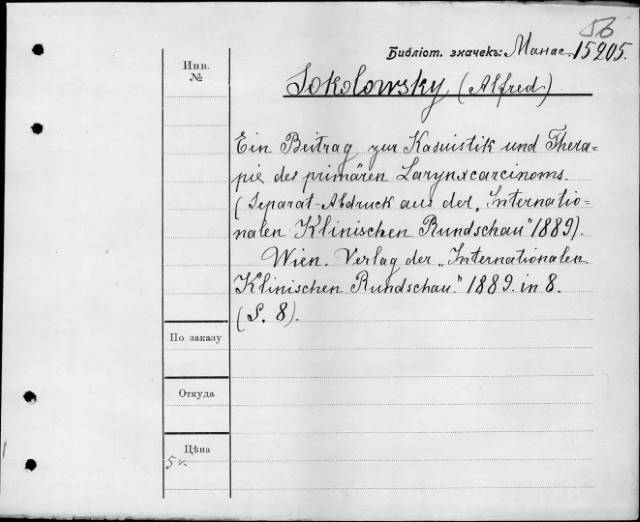 56
Библіот. значекъ: Манас. 15205.
Инв.
№
Sokolowsky (Alfred)
Ein Beitrag zur Kasuistik und Thera=
pie des primären Larynxcarcinoms.
(Separat-Abdruck aus der „Internatio=
nalen Klinischen Rundschau" 1889).
Wien. Verlag der „Internationalen
Klinischen Rundschau." 1889. in 8.
(S. 8).
По заказу
Откуда
Цѣна
5 к.